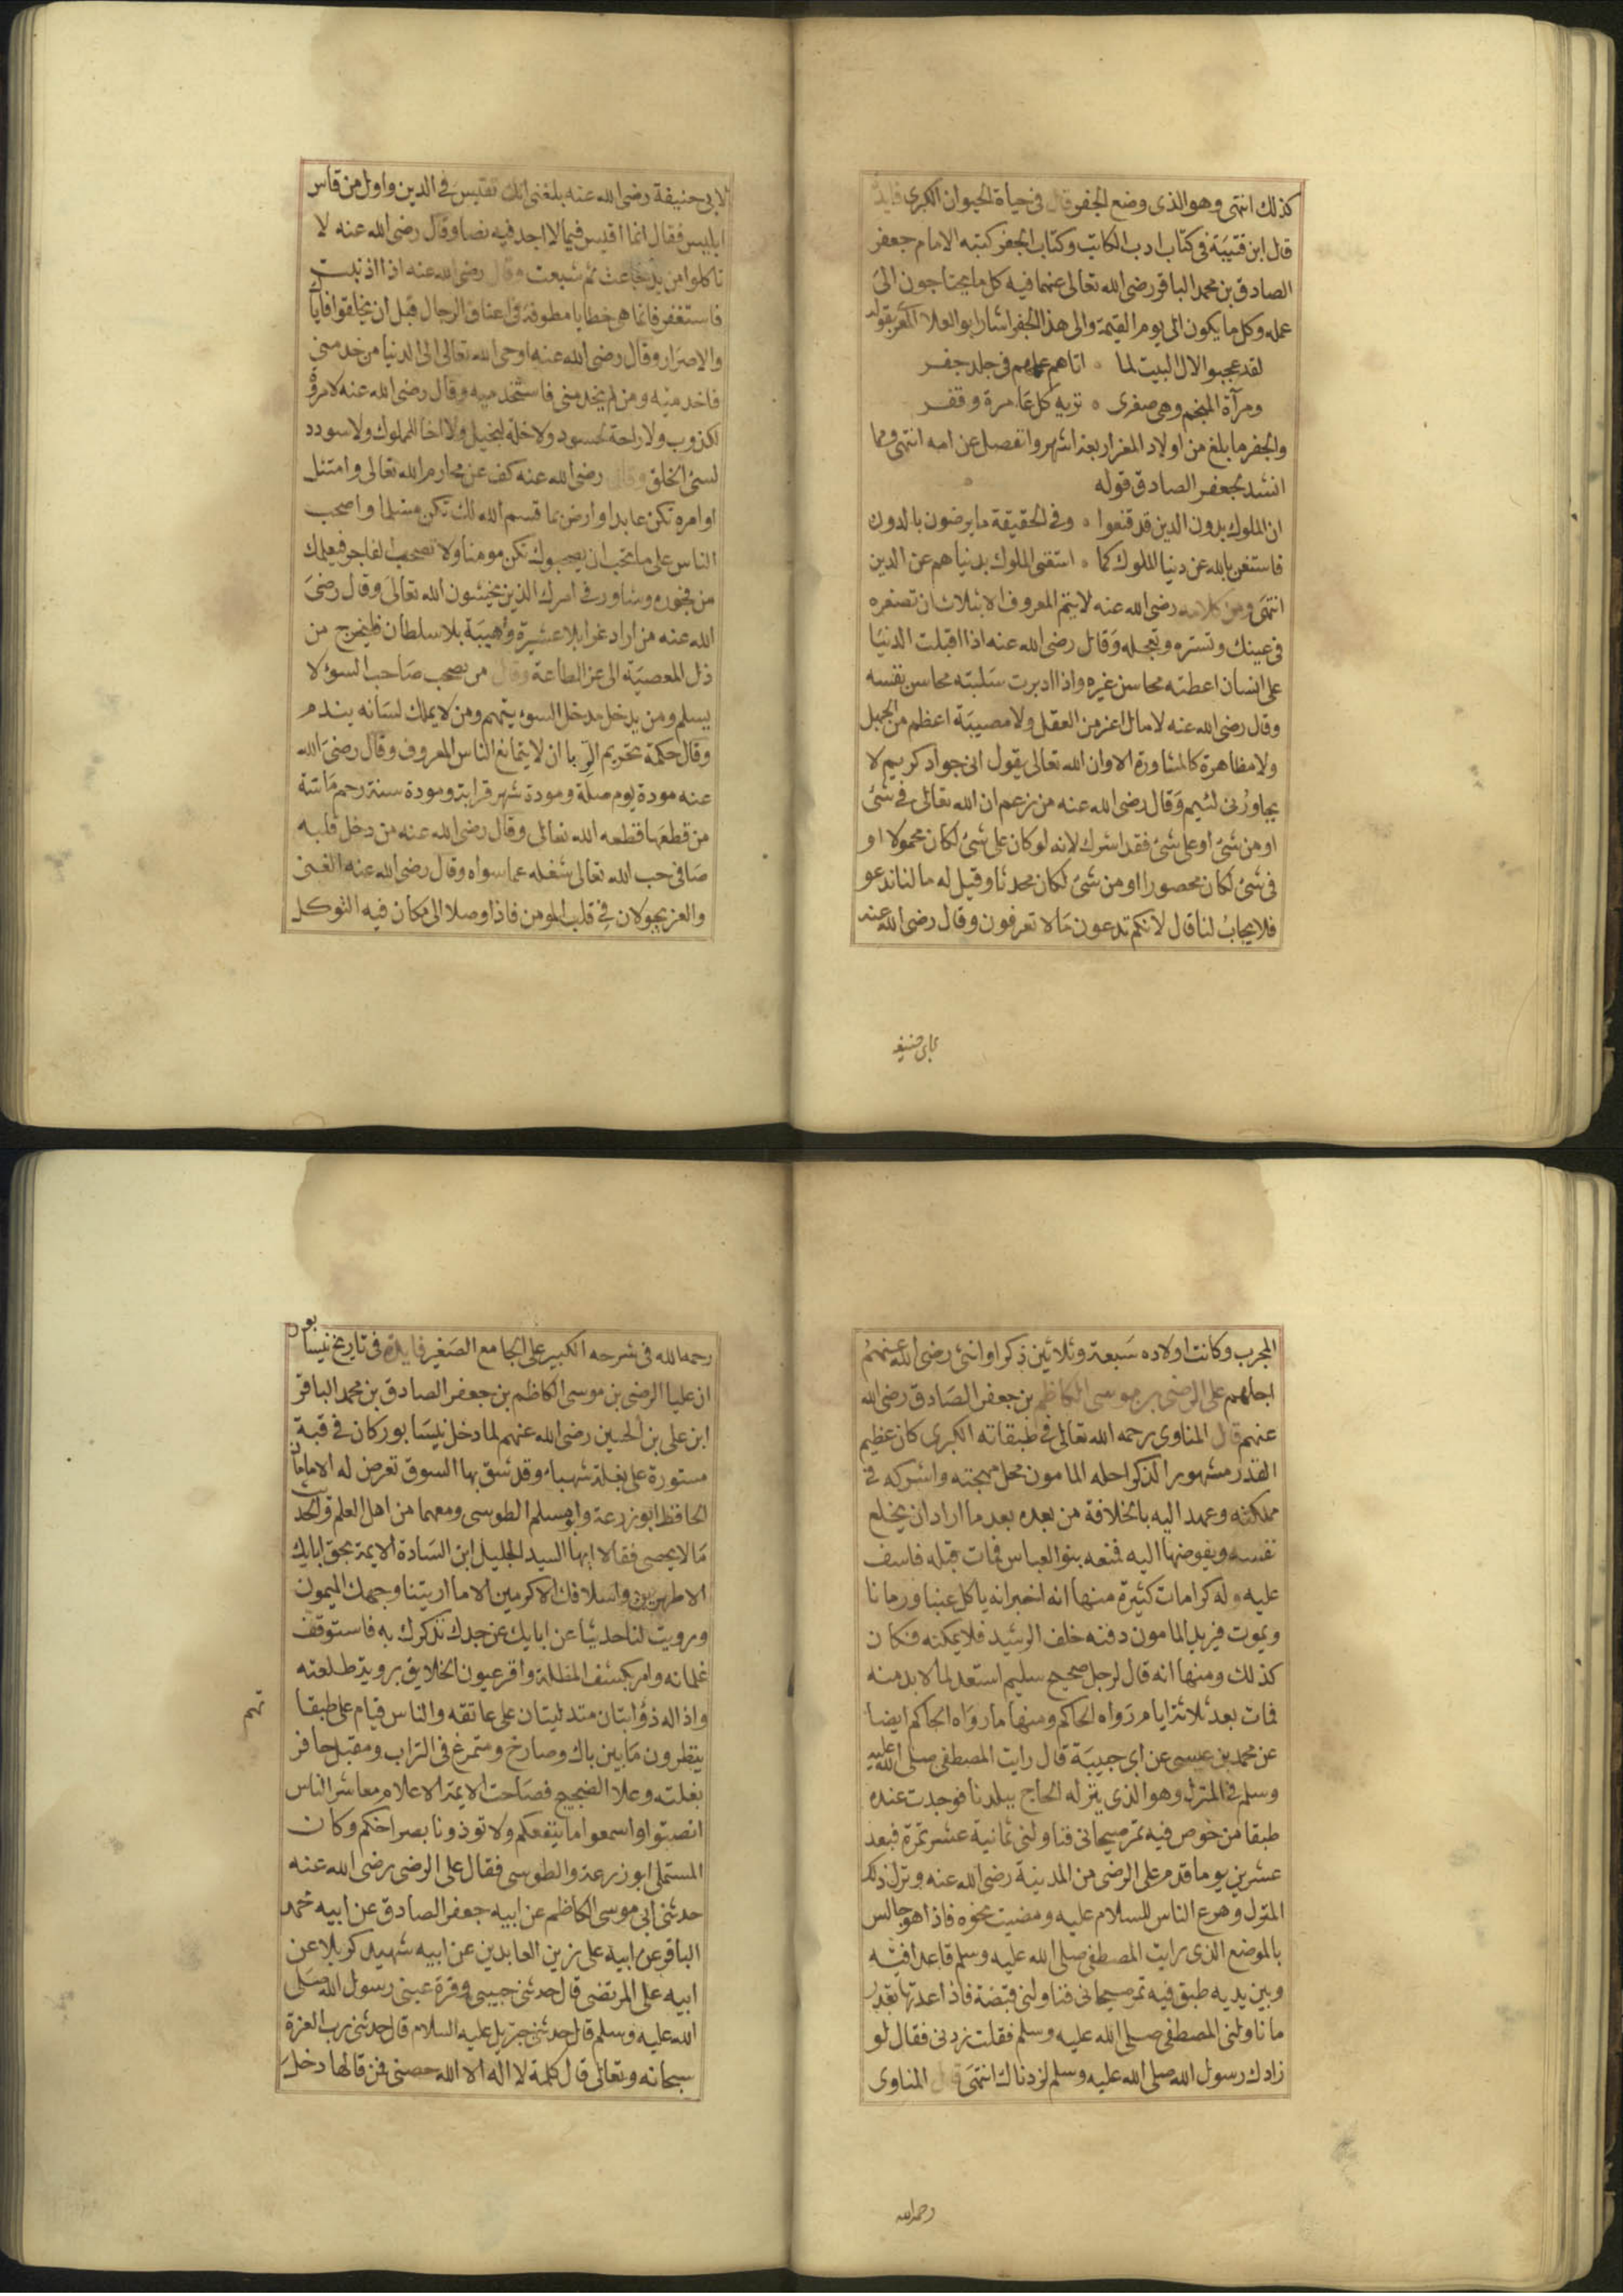 كذلك انتهى وهو الذى وضع الجفر قال فى حياة الحيوان الكبرى فايدة
قال ابن قتيبة فى كتاب ادب الكاتب وكتاب الجفر كتبه الامام جعفر
الصادق بن محمد الباقر رضى الله تعالى عنهما فيه كل ما يحتاجون الى
عمله وكل ما يكون الى يوم القيمة والى هذا الجفر اشار ابو العلا المعرى بقوله
لقد عجبوا لال البيت لما ٥ اتاهم علمهم فى جلد جفر
ومرآة المنجم وهى صغرى ٥ تريه كل عامرة وقفر
والجفر ما بلغ من اولاد المعز اربعة اشهر وانفصل عن امه انتهى ومما
انشد لجعفر الصادق قوله
ان الملوك بدون الدين قد قنعوا ٥ وفى الحقيقة ما يرضون بالدون
فاستغن بالله عن دنيا الملوك كما ٥ استغنى الملوك بدنياهم عن الدين
انتهى ومن كلامه رضى الله عنه لا يتم المعروف الا بثلاث ان تصغره
فى عينك وتستره وتعجله وقال رضى الله عنه اذا اقبلت الدنيا
على انسان اعطته محاسن غيره واذا ادبرت سلبته محاسن نفسه
وقال رضى الله عنه لا مال اعز من العقل ولا مصيبة اعظم من الجهل
ولا مظاهرة كالمشاورة الا وان الله تعالى يقول انى جواد كريم لا
يجاورنى لئيم وقال رضى الله عنه من زعم ان الله تعالى فى شئ
او من شئ او على شئ فقد اشرك لانه لو كان على شئ لكان محمولا او
فى شئ لكان محصورا او من شئ لكان محدثا وقيل له ما لنا ندعو
فلا يجاب لنا قال لانكم تدعون ما لا تعرفون وقال رضى الله عنه
لابى حنيفه
لابى حنيفة رضى الله عنه بلغنى انك تقيس فى الدين واول من قاس
ابليس فقال انما اقيس فيما لا اجد فيه نصا وقال رضى الله عنه لا
تاكلوا من يد جاعت ثم شبعت وقال رضى الله عنه اذا اذنبت
فاستغفر فانما هى خطايا مطوقة فى اعناق الرجال قبل ان يخلقوا فاياك
والاصرار وقال رضى الله عنه اوحى الله تعالى الى الدنيا من خدمنى
فاخدميه ومن لم يخدمنى فاستخدميه وقال رضى الله عنه لا مروة
لكذوب ولا راحة لحسود ولا خلة لبخيل ولا اخا للملوك ولا سودد
لسئ الخلق وقال رضى الله عنه كف عن محارم الله تعالى وامتثل
اوامره تكن عابدا وارض بما قسم الله لك تكن مسلما واصحب
الناس على ما تحب ان يصحبوك تكن مومنا ولا تصحب الفاجر فيعلمك
من فجوره وشاور فى امرك الذين يخشون الله تعالى وقال رضى
الله عنه من اراد عزا بلا عشيرة وهيبة بلا سلطان فليخرج من
ذل المعصية الى عز الطاعة وقال من يصحب صاحب السوء لا
يسلم ومن يدخل مدخل السوء يتهم ومن لا يملك لسانه يندم
وقال حكمة تحريم الربا ان لا يتمانع الناس المعروف وقال رضى الله
عنه مودة يوم صلة ومودة شهر قرابة ومودة سنة رحم ماتتة
من قطعها قطعه الله تعالى وقال رضى الله عنه من دخل قلبه
صافى حب الله تعالى شغله عما سواه وقال رضى الله عنه الغنى
والعز يجولان فى قلب المومن فاذا وصلا الى مكان فيه التوكل
المجرب وكانت اولاده سبعة وثلاثين ذكرا وانثى رضى الله عنهم
اجلهم على الرضى بن موسى الكاظم بن جعفر الصادق رضى الله
عنهم قال المناوى رحمه الله تعالى فى طبقاته الكبرى كان عظيم
القدر مشهور الذكر احله المامون محل مهجته واشركه فى
مملكته وعهد اليه بالخلافة من بعده بعد ما اراد ان يخلع
نفسه ويفوضها اليه فمنعه بنو العباس فمات قبله فاسف
عليه وله كرامات كثيرة منها انه اخبر انه ياكل عنبا ورمانا
ويموت فيريد المامون دفنه خلف الرشيد فلا يمكنه فكان
كذلك ومنها انه قال لرجل صحيح سليم استعد لما لا بد منه
فمات بعد ثلاثة ايام رواه الحاكم ومنها ما رواه الحاكم ايضا
عن محمد بن عيسى عن ابى حبيبة قال رايت المصطفى صلى الله عليه
وسلم فى المنزل وهو الذى ينزله الحاج ببلدنا فوجدت عنده
طبقا من خوص فيه تمر صيحانى فناولنى ثمانية عشر تمرة فبعد
عشرين يوما قدم على الرضى من المدينة رضى الله عنه ونزل ذلك
المنزل وهرع الناس للسلام عليه ومضيت نحوه فاذا هو جالس
بالموضع الذى رايت المصطفى صلى الله عليه وسلم قاعدا فيه
وبين يديه طبق فيه تمر صيحانى فناولنى قبضة فاذا عدتها بقدر
ما ناولنى المصطفى صلى الله عليه وسلم فقلت زدنى فقال لو
زادك رسول الله صلى الله عليه وسلم لزدناك انتهى قال المناوى
رحمه الله
رحمه الله فى شرحه الكبير على الجامع الصغير فايدة فى تاريخ نيسابور
ان عليا الرضى بن موسى الكاظم بن جعفر الصادق بن محمد الباقر
ابن على بن الحسين رضى الله عنهم لما دخل نيسابور كان فى قبة
مستورة على بغلة شهباء وقد شق بها السوق تعرض له الامامان
الحافظ ابو زرعة وابو مسلم الطوسى ومعهما من اهل العلم والحديث
ما لا يحصى فقالا ايها السيد الجليل ابن السادة الايمة بحق ابايك
الاطهرين واسلافك الاكرمين الا ما اريتنا وجهك الميمون
ورويت لنا حديثا عن ابايك عن جدك نذكرك به فاستوقف
غلمانه وامر بكشف المظلة واقر عيون الخلايق بروية طلعته
واذا له ذؤابتان متدليتان على عاتقه والناس قيام على طبقا
تهم
ينظرون ما بين باك وصارخ ومتمرغ فى التراب ومقبل حافر
بغلته وعلا الضجيج فصاحت الايمة الاعلام معاشر الناس
انصتوا واسمعوا ما ينفعكم ولا توذونا بصراخكم وكان
المستملى ابو زرعة والطوسى فقال على الرضى رضى الله عنه
حدثنى ابى موسى الكاظم عن ابيه جعفر الصادق عن ابيه محمد
الباقر عن ابيه على زين العابدين عن ابيه شهيد كربلا عن
ابيه على المرتضى قال حدثنى حبيبى وقرة عينى رسول الله صلى
الله عليه وسلم قال حدثنى جبريل عليه السلام قال حدثنى رب العزة
سبحانه وتعالى قال كلمة لا اله الا الله حصنى فمن قالها دخل